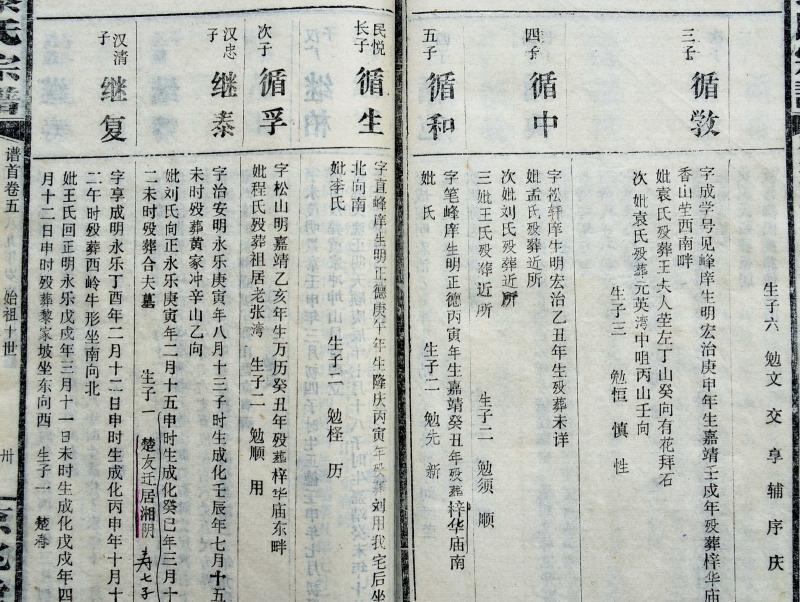 生子六 勉文 交 享 辅 序 庆
三子 循敩
字成学号见峰庠生明宏治庚申年生嘉靖壬戌年殁葬梓华庙
香山茔西南畔
妣袁氏殁葬王夫人茔左丁山癸向有花拜石
次妣袁氏殁葬元英湾中咀丙山壬向
生子三 勉恒 慎 性
四子 循中
字松轩庠生明宏治乙丑年生殁葬未详
妣孟氏殁葬近所
次妣刘氏殁葬近所
三妣王氏殁葬近所 生子二 勉须 顺
五子 循和
字笔峰庠生明正德丙寅年生嘉靖癸丑年殁葬梓华庙南
妣 氏 生子二 勉先 新
民悦长子 循生
字直峰庠生明正德庚午年生隆庆丙寅年殁葬刘用我宅后坐
北向南
妣李氏 生子二 勉柽 历
次子 循孚
字松山明嘉靖乙亥年生万历癸丑年殁葬梓华庙东畔
妣程氏殁葬祖居老张湾 生子二 勉顺 用
汉忠子 继泰
字治安明永乐庚寅年八月十三子时生成化壬辰年七月十五
未时殁葬黄家冲辛山乙向
妣刘氏向正永乐庚寅年二月十五申时生成化癸巳年三月十
二未时殁葬合夫墓 生子一 楚友迁居湘阴 寿七子
汉清子 继复
字享成明永乐丁酉年二月十二日申时生成化丙申年十月十
二午时殁葬西岭牛形坐南向北
妣王氏回正明永乐戊戌年三月十一日未时生成化戊戌年四
月十二日申时殁葬黎家坡坐东向西 生子一 楚春
氏宗谱
谱首卷五
始祖十世
卅